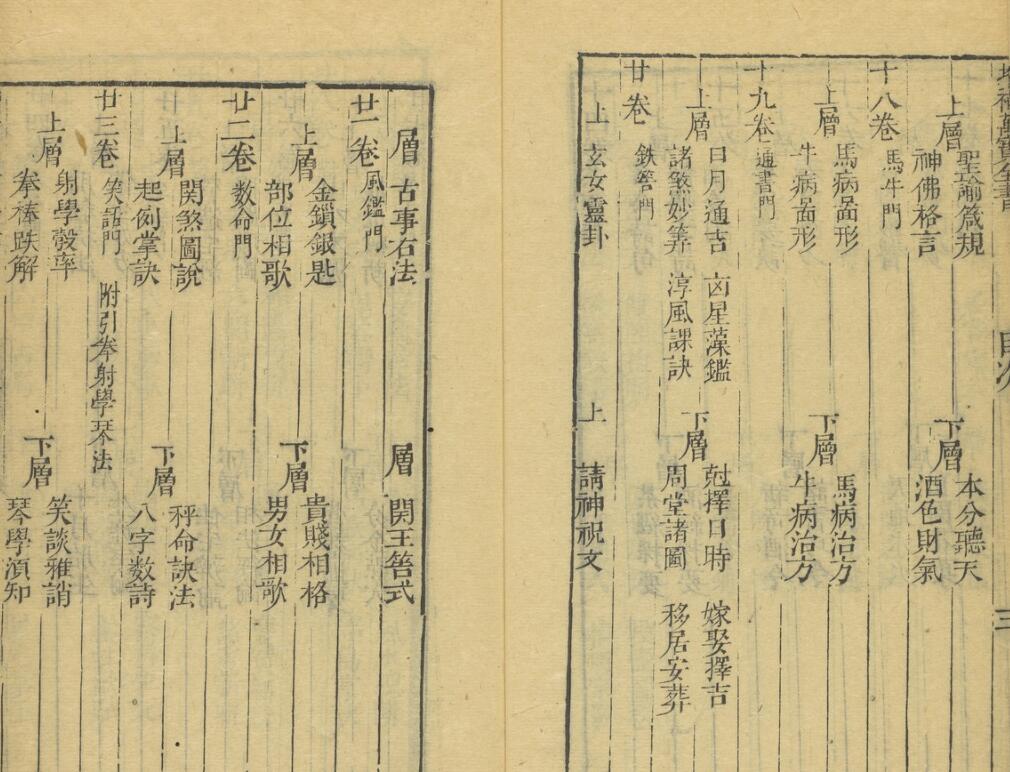 補萬寶全書 目次 三
上層
聖諭箴規
神佛格言
下層
本分聽天
酒色財氣
十八卷 馬牛門
上層
馬病啚形
牛病啚形
下層
馬病治方
牛病治方
十九卷 通書門
上層
日月通吉 凶星藻鑑
諸煞妙筭 淳風課訣
下層
尅擇日時 嫁娶擇吉
周堂諸圖 移居安葬
廿卷 鉄筶門
上 玄女靈卦 上 請神祝文
層 古事右法 層 関王筶式
廿一卷 風鑑門
上層
金鎖銀匙
部位相歌
下層
貴賤相格
男女相歌
廿二卷 数命門
上層
関煞圖說
起例掌訣
下層
秤命訣法
八字数詩
廿三卷 笑話門 附引拳射學琴法
上層
射學彀率
拳棒跌解
下層
笑談雅誚
琴學湏知